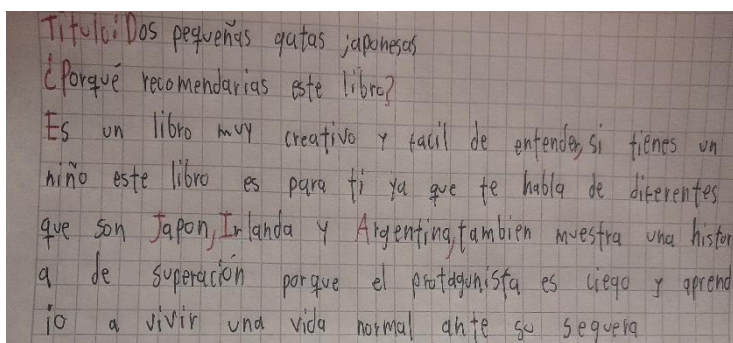 Titulo: Dos pequeñas gatas japonesas
¿Porqué recomendarias este libro?
Es un libro muy creativo y facil de entender, si tienes un
niño este libro es para ti ya que te habla de diferentes
que son Japon, Irlanda y Argentina, tambien muestra una histor
a de superación porque el protagonista es ciego y aprend
io a vivir una vida normal ante su seguera